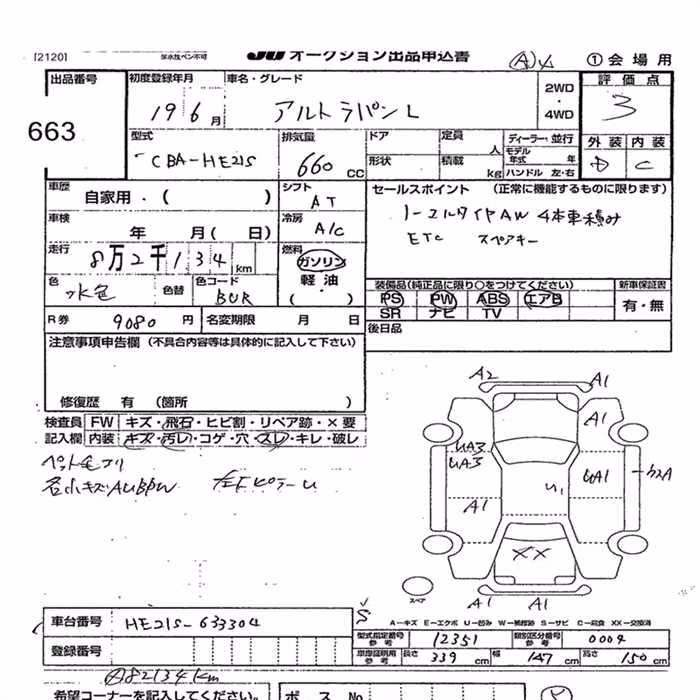 [2120] 感水性ペン不可 JU オークション出品申込書 Ⓐ ①会場用
出品番号 初度登録年月 車名・グレード 2WD・4WD 評価点
663 19 6月 アルトラパン L 3
型式 排気量 ドア 定員 人 ディーラー・並行 外装 内装
CBA-HE21S 660 CC 形状 積載 kg モデル年式 年 ハンドル 左・右 D C
車歴 自家用・( ) シフト AT セールスポイント (正常に機能するものに限ります)
車検 年 月( 日) 冷房 A/C トーエルタイヤAW 4本車積み
走行 8万2千134km 燃料 ガソリン 軽油・( ) ETC スペアキー
色 水色 色替 色コード BUR 装備品(純正品に限り○をつけてください) 新車保証書
PS PW ABS エアB 有・無
SR ナビ TV
R券 9080円 名変期限 月 日 後日品
注意事項申告欄 (不具合内容等は具体的に記入して下さい)
修復歴 有 (箇所 )
検査員 FW キズ・飛石・ヒビ割・リペア跡・×要
記入欄 内装 キズ・汚レ・コゲ・穴・スレ・キレ・破レ
ペット毛アリ
各小キズAUBPW 左Fピラー U
A2 A1
A1
UA3
UA3
UA1
A1 U1
A1
XX
A1 A1
スペア
A−キズ E−エクボ U−凹み W−補修跡 S−サビ C−腐食 XX−交換済
車台番号 HE21S-633304 S
登録番号
型式指定番号 参考 12351 類別区分番号 参考 0004
車庫証明用 参考 長さ 339cm 幅 147cm 高さ 150cm
Ⓐ82134km
希望コーナーを記入してください。 ボス No